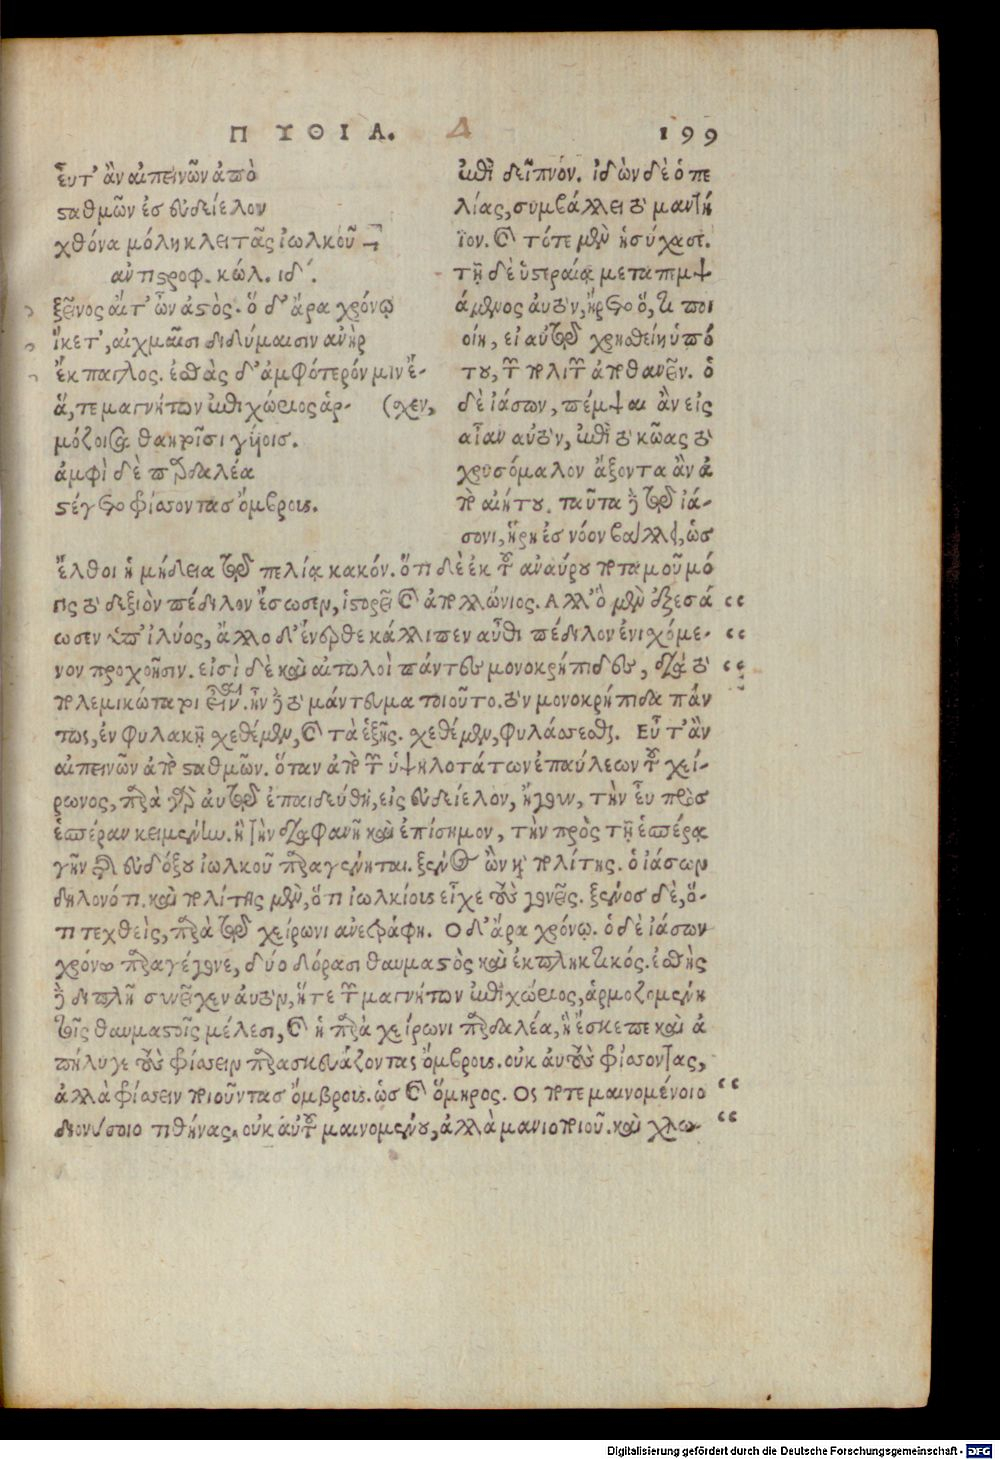 ΠΥΘΙΑ. Δ 199
εὖτ' ἂν αἰπεινῶν ἀπὸ
σταθμῶν ἐσ εὐδείελον
χθόνα μόλη κλειτᾶς ἰωλκοῦ
ἀντιστροφ. κώλ. ιδ'.
ξεῖνος αἴτ' ὢν ἀστὸς. ὅ δ' ἄρα χρόνῳ
ἵκετ', αἰχμαῖσι διδύμαισιν ἀνὴρ
ἔκπαγλος. ἐσθὰς δ' ἀμφότερόν μιν ἔ-
ἅ, τε μαγνήτων ἐπιχώριος ἁρ- (χεν,
μόζοισα θαητοῖσι γυίοις.
ἀμφὶ δὲ παρδαλέα
στέγετο φρίσσοντασ ὄμβροις.
ἐπὶ δεῖπνόν. ἰδὼν δὲ ὁ πε
λίας, συμβάλλει τὸ μαντήϊον. καὶ τότε μὲν ἡσύχασε.
τῇ δὲ ὑστεραίᾳ μεταπεμψ
άμενος αὐτὸν, ἤρετο ὅ, τι ποι
οίη, εἰ αὐτῷ χρησθείη ὑπό
του, τῶν πολιτῶν ἀποθανεῖν. ὁ
δὲ ἰάσων, πέμψαι ἂν εἰς
αἶαν αὐτὸν, ἐπὶ τὸ κῶας τὸ
χρυσόμαλον ἄξοντα ἂν ἀ
πὸ αἰήτου. ταῦτα γὰρ τῷ ἰά-
σονι, ἥρη ἐσ νόον βάλλει, ὡσ
ἔλθοι ἡ μήδεια τῷ πελίᾳ κακόν. ὅτι δὲ ἐκ τοῦ ἀναύρου ποταμοῦ μό
νις τὸ δεξιὸν πέδιλον ἔσωσεν, ἱστορεῖ καὶ ἀπολλώνιος. Αλλ' ὃ μὲν ἐξεσά
ωσεν ὑπ' ἰλύος, ἄλλο δ' ἔνερθε κάλλιπεν αὖθι πέδιλον ἐνιχόμε-
νον προχοῆσιν. εἰσὶ δὲ καὶ αἰτωλοὶ πάντες μονοκρήπιδες, διὰ τὸ
πολεμικώτατοι εἶναι. ἦν γὰρ τὸ μάντευμα τοιοῦτο. τὸν μονοκρήπιδα πάν
τως, ἐν φυλακῇ σχεθέμεν, καὶ τὰ ἑξῆς. σχεθέμεν, φυλάσσεσθαι. Εὖτ' ἂν
αἰπεινῶν ἀπὸ σταθμῶν. ὅταν ἀπὸ τῶν ὑψηλοτάτων ἐπαύλεων τοῦ χεί-
ρωνος, παρὰ γὰρ αὐτῷ ἐπαιδεύθη, εἰς εὐδείελον, ἤγουν, τὴν εὖ πρὸσ
ἑσπέραν κειμένην. ἢ τὴν διαφανῆ καὶ ἐπίσημον, τὴν πρὸς τῇ ἑσπέρᾳ
γῆν τοῦ εὐδόξου ἰωλκοῦ παραγένηται. ξένος ὢν ἢ πολίτης. ὁ ἰάσων
δηλονότι. καὶ πολίτης μὲν, ὅτι ἰωλκίοις εἶχε τοὺς γονεῖς. ξένοσ δὲ, ὅ-
τι τεχθεὶς, παρὰ τῷ χείρωνι ἀνετράφη. Ο δ' ἄρα χρόνῳ. ὁ δὲ ἰάσων
χρόνῳ παραγέγονε, δύο δόρασι θαυμαστὸς καὶ ἐκπληκτικός. ἐσθὴς
γὰρ διπλῆ συνεῖχεν αὐτὸν, ἥτε τῶν μαγνήτων ἐπιχώριος, ἁρμοζομένη
τοῖς θαυμαστοῖς μέλεσι, καὶ ἡ παρὰ χείρωνι παρδαλέα, ἢ ἔσκεπε καὶ ἀ
πήλυγε τοὺς φρίσσειν παρασκευάζοντας ὄμβροις. οὐκ αὐτοὺς φρίσσοντας,
ἀλλὰ φρίσσειν ποιοῦντασ ὄμβροις. ὡσ καὶ ὅμηρος. Ος ποτε μαινομένοιο “
διονύσοιο τιθήνας. οὐκ αὐτοῦ μαινομένου, ἀλλὰ μανιοποιοῦ. καὶ χλω- “